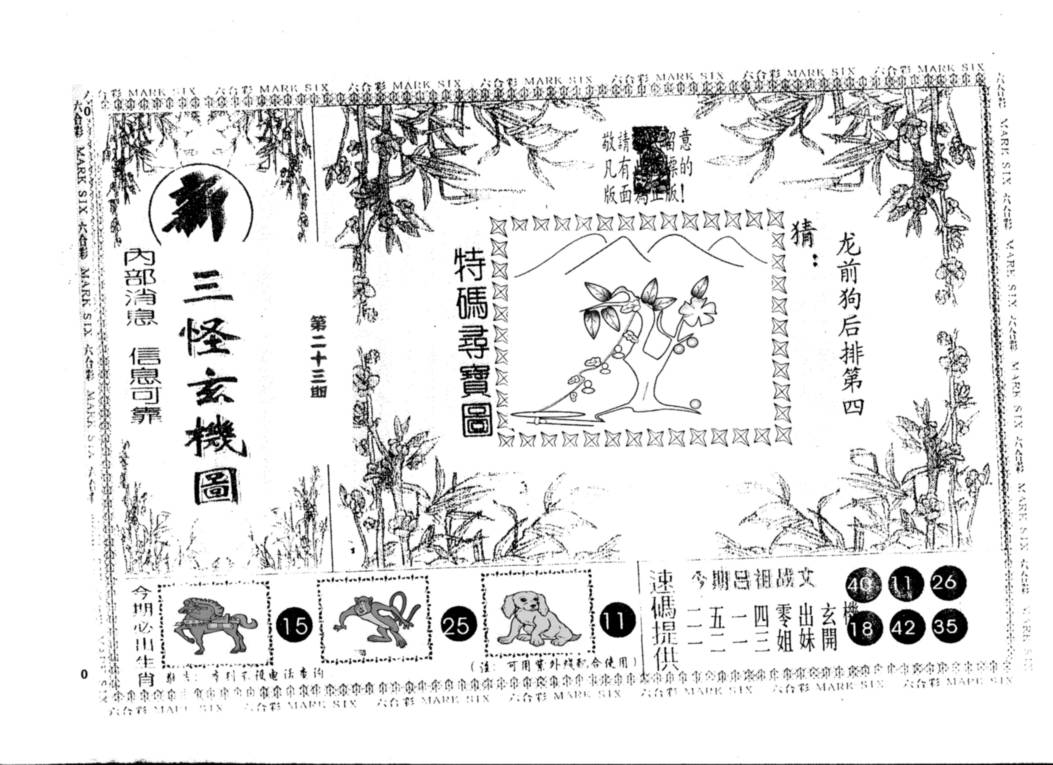 六合彩 MARK SIX 六合彩 MARK SIX 六合彩 MARK SIX 六合彩 MARK SIX 六合彩 MARK SIX 六合彩 MARK SIX 六合彩 MARK SIX
新
三怪玄機圖
內部消息 信息可靠
第二十三期
敬請 意
凡有 的
版面為正版!
特碼尋寶圖
猜:
龙前狗后排第四
今期必出生肖
15
25
11
(注: 可用紫外线配合使用)
速碼提供
今期吕祖战文
二五一四零出玄機
一二一三姐妹開
40 11 26
18 42 35
六合彩 MARK SIX 六合彩 MARK SIX 六合彩 MARK SIX 六合彩 MARK SIX 六合彩 MARK SIX 六合彩 MARK SIX 六合彩 MARK SIX